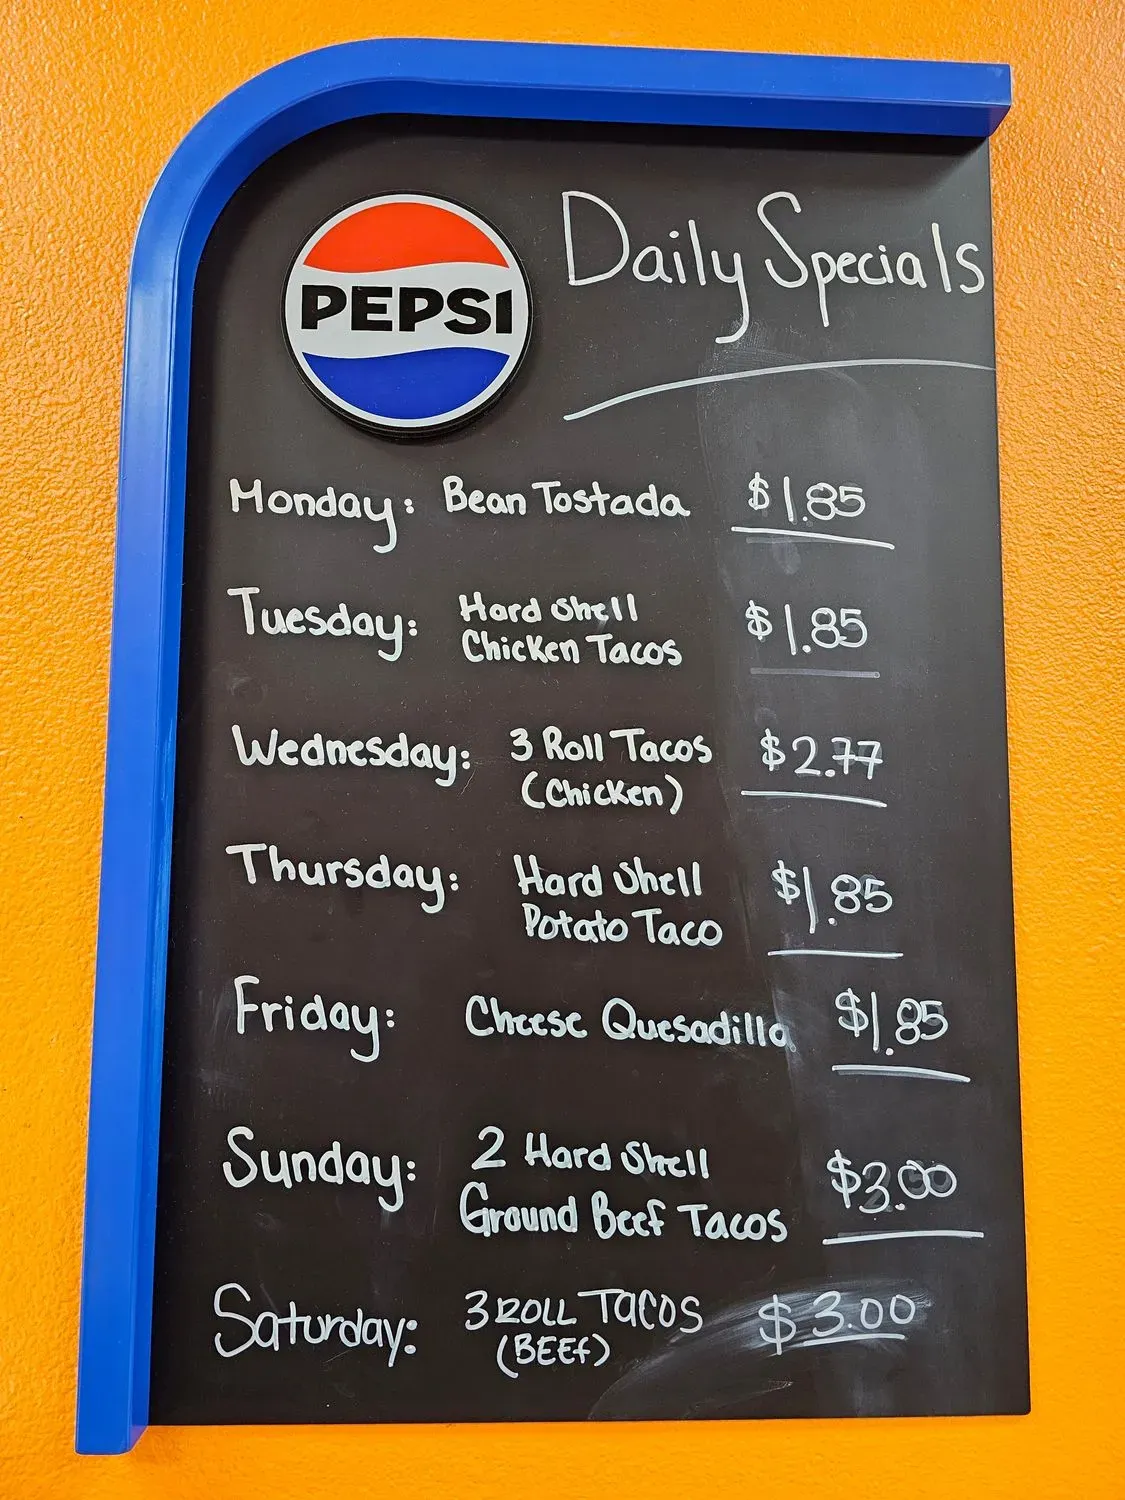 PEPSI
Daily Specials
Monday: Bean Tostada $1.85
Tuesday: Hard Shell
Chicken Tacos $1.85
Wednesday: 3 Roll Tacos $2.77
(Chicken)
Thursday: Hard Shell $1.85
Potato Taco
Friday: Cheese Quesadilla $1.85
Sunday: 2 Hard Shell $3.00
Ground Beef Tacos
Saturday: 3 ROLL TACOS $3.00
(BEEf)